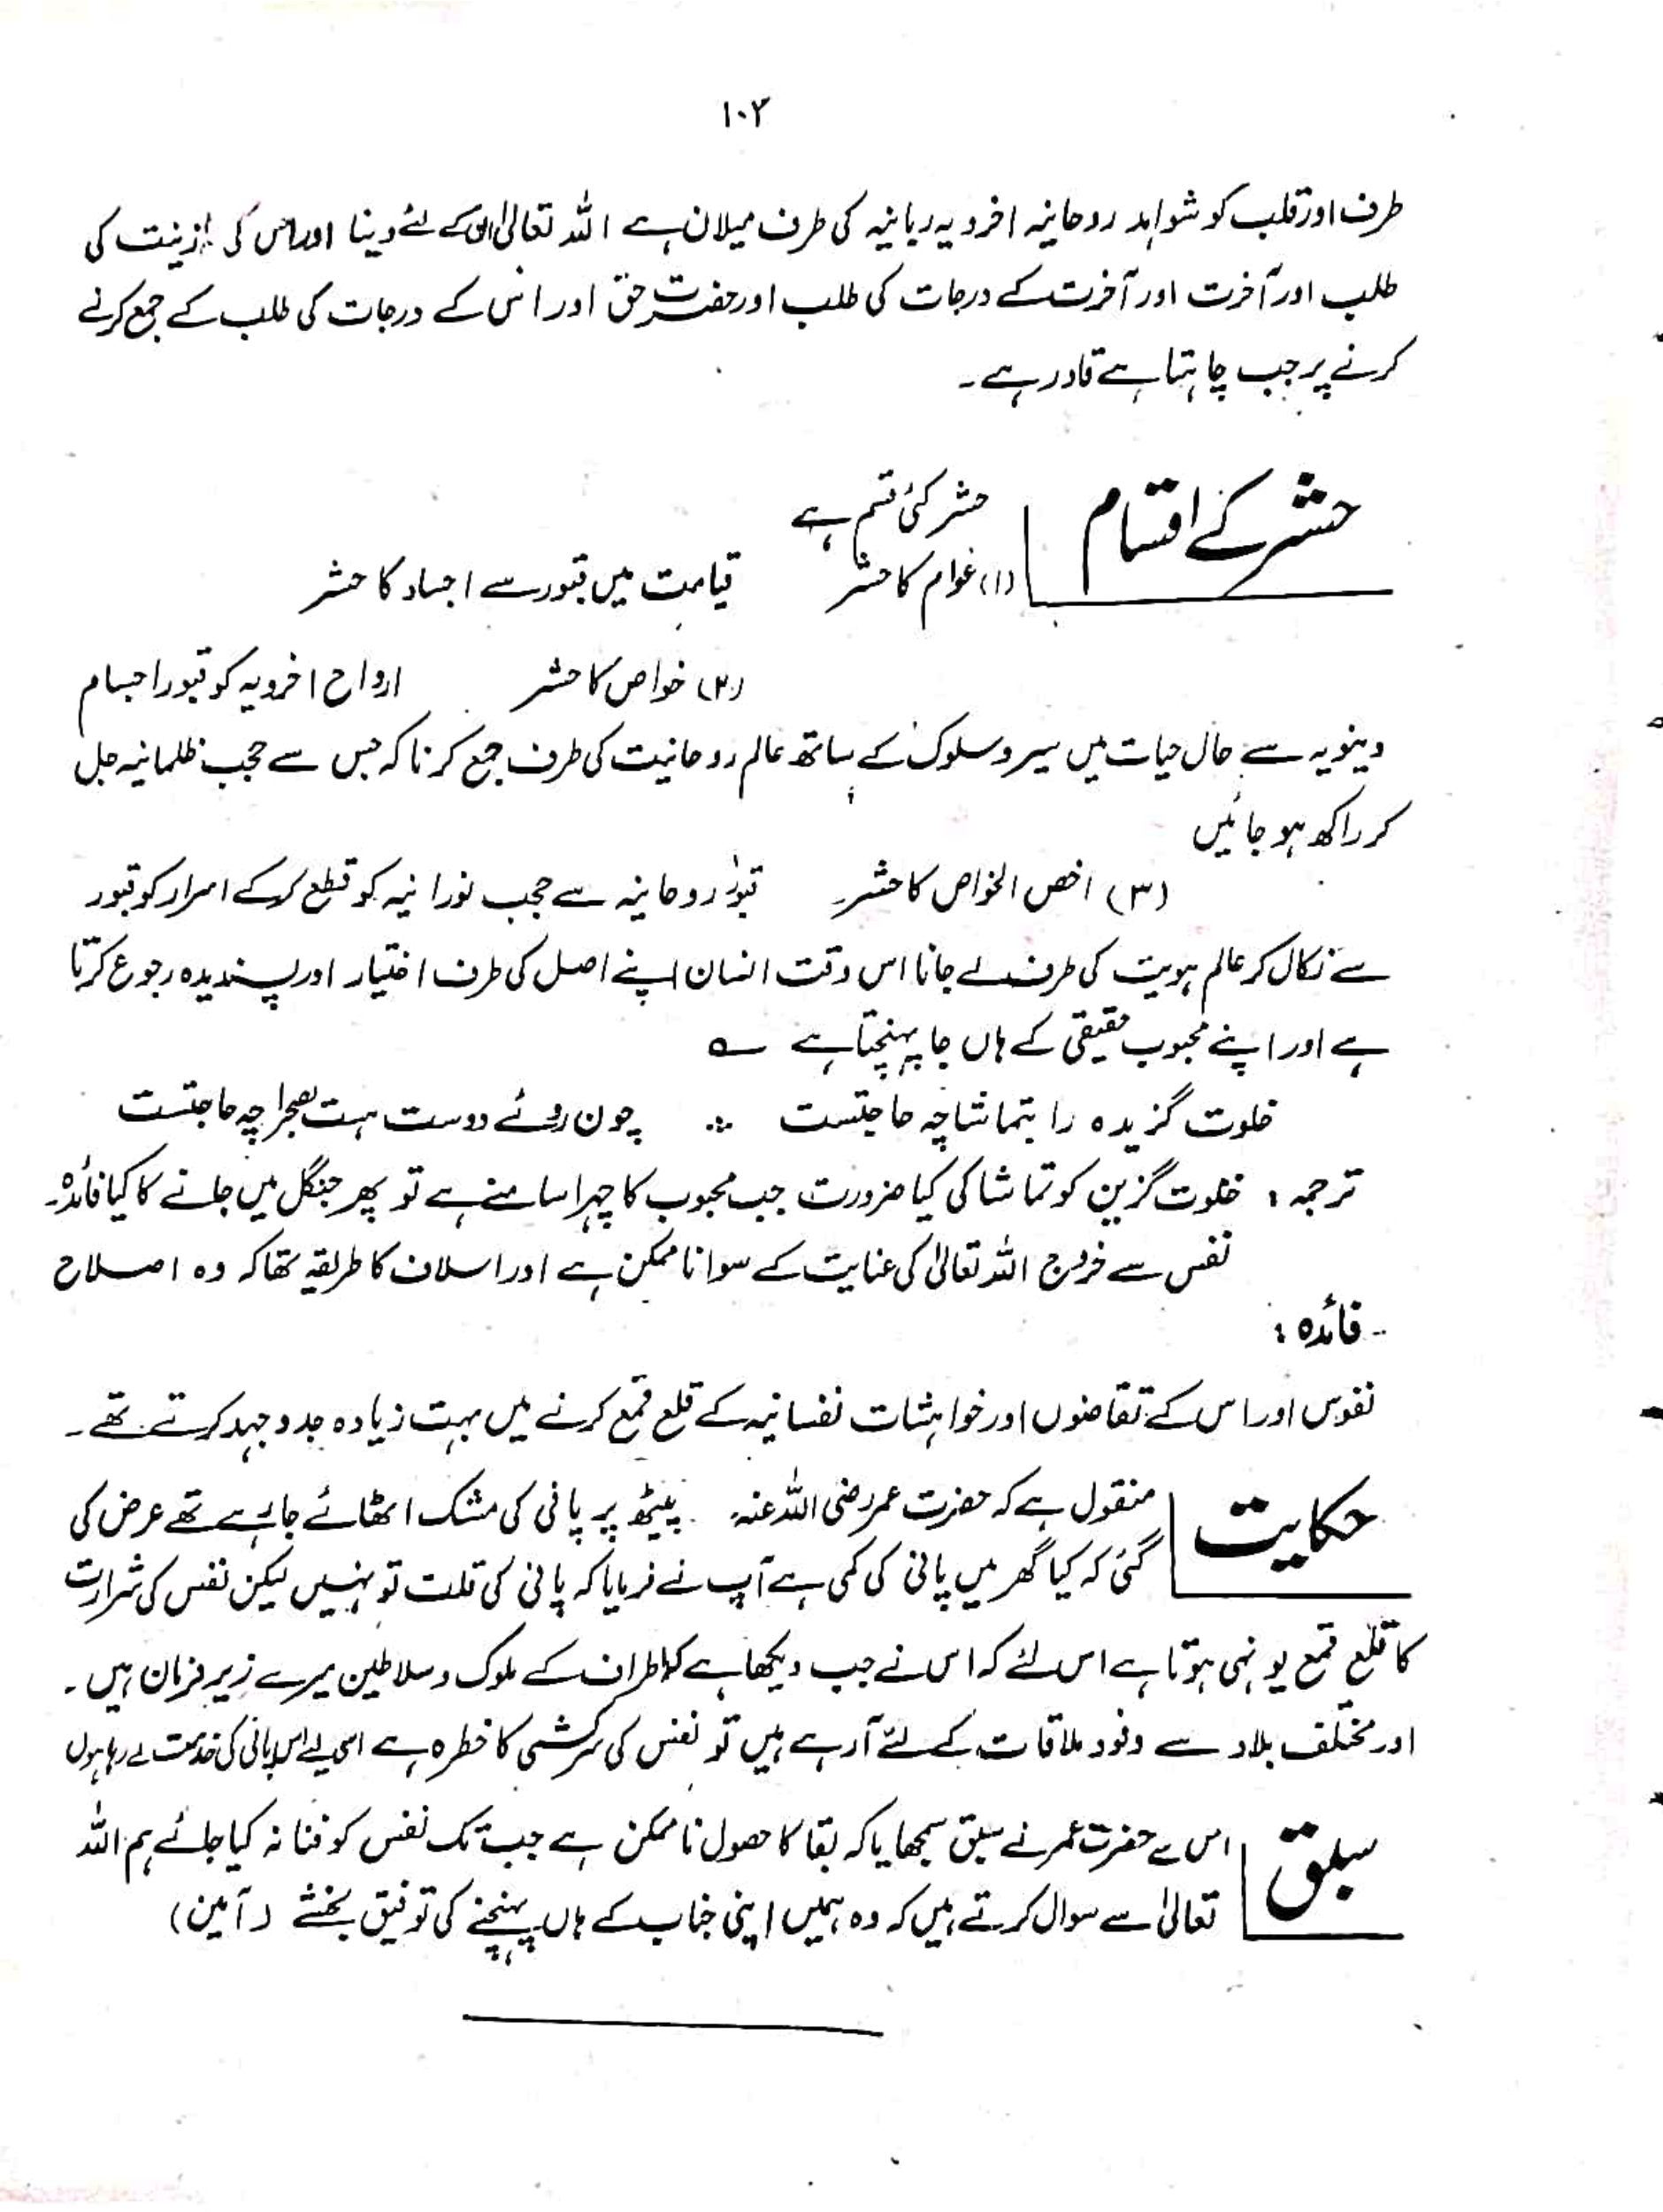 ۱۰۲
طرف اور قلب کو شواہد روحانیہ اخرویہ ربانیہ کی طرف میلان ہے اللہ تعالیٰ ان کے لئے دینا اور اس کی زینت کی
طلب اور آخرت اور آخرت کے درجات کی طلب اور حضرت حق اور انس کے درجات کی طلب کے جمع کرنے
کرنے پر جب چاہتا ہے قادر ہے۔
حشر کے اقسام
حشر کئی قسم ہے
(۱) عوام کا حشر قیامت میں قبور سے اجساد کا حشر
(۲) خواص کا حشر ارواح اخرویہ کو قبور اجسام
دینویہ سے حال حیات میں سیر و سلوک کے ساتھ عالم روحانیت کی طرف جمع کرنا کہ جس سے حجب ظلمانیہ جل
کر راکھ ہو جائیں
(۳) اخص الخواص کا حشر۔ قبور روحانیہ سے حجب نورانیہ کو قطع کرکے اسرار کو قبور
سے نکال کر عالم ہویت کی طرف لے جانا اس وقت انسان اپنے اصل کی طرف اختیار اور پسندیدہ رجوع کرتا
ہے اور اپنے محبوب حقیقی کے ہاں جا پہنچتا ہے ؎
خلوت گزیدہ را بتماشا چہ حاجتست ∴ چون روئے دوست ہست بصحرا چہ حاجتست
ترجمہ : خلوت گزین کو تماشا کی کیا ضرورت جب محبوب کا چہرا سامنے ہے تو پھر جنگل میں جانے کا کیا فائدہ۔
نفس سے خروج اللہ تعالیٰ کی عنایت کے سوا ناممکن ہے اور اسلاف کا طریقہ تھا کہ وہ اصلاح
۔ فائدہ :
نفوس اور اس کے تقاضوں اور خواہشات نفسانیہ کے قلع قمع کرنے میں بہت زیادہ جدوجہد کرتے تھے۔
حکایت
منقول ہے کہ حضرت عمر رضی اللہ عنہ پیٹھ پر پانی کی مشک اٹھائے جا رہے تھے عرض کی
گئی کہ کیا گھر میں پانی کی کمی ہے آپ نے فرمایا کہ پانی کی قلت تو نہیں لیکن نفس کی شرارت
کا قلع قمع یونہی ہوتا ہے اس لئے کہ اس نے جب دیکھا ہے کہ اطراف کے ملوک و سلاطین میرے زیر فرمان ہیں۔
اور مختلف بلاد سے وفود ملاقات کے لئے آ رہے ہیں تو نفس کی سرکشی کا خطرہ ہے اسی لیے اس پانی کی خدمت لے رہا ہوں
سبق
اس سے حضرت عمر نے سبق سمجھایا کہ بقا کا حصول ناممکن ہے جب تک نفس کو فنا نہ کیا جائے ہم اللہ
تعالیٰ سے سوال کرتے ہیں کہ وہ ہمیں اپنی جناب کے ہاں پہنچنے کی توفیق بخشے (آمین)